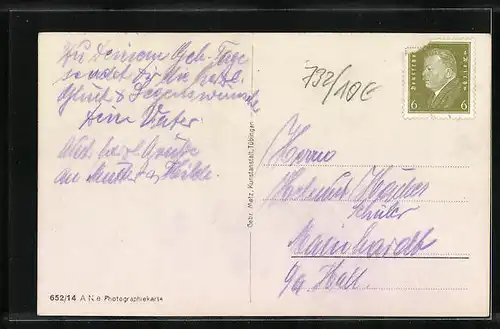 Zu Deinem Geb. Tage
sendet Dir die herzl.
Glück & Segenswünsche
Dein Vater.
Auch herzl. Grüße
an Mutter u. Hilde.
652/14 A.N.e. Photographiekarte
Gebr. Metz, Kunstanstalt, Tübingen
732/10€
Deutsches Reich
6 6
Herrn
Helmut
Schüler
Mainhardt
b/a Hall.